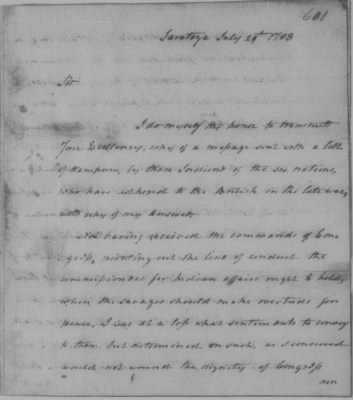 601
Saratoga July 29th 1783
Sir
I do myself the honor to transmitt
Your Excellency, copy of a message sent with a belt
of Wampum, by those Indians of the six nations,
who have adhered to the British in the late war,
with copy of my Answer,
Not having received the commands of Con-
gress, pointing out the line of conduct the
commissioners for Indian affairs ought to hold,
when the savages should make overtures for
peace, I was at a loss what sentiments to convey
to them, but determined on such, as I conceived
would not wound the dignity of Congress
nor